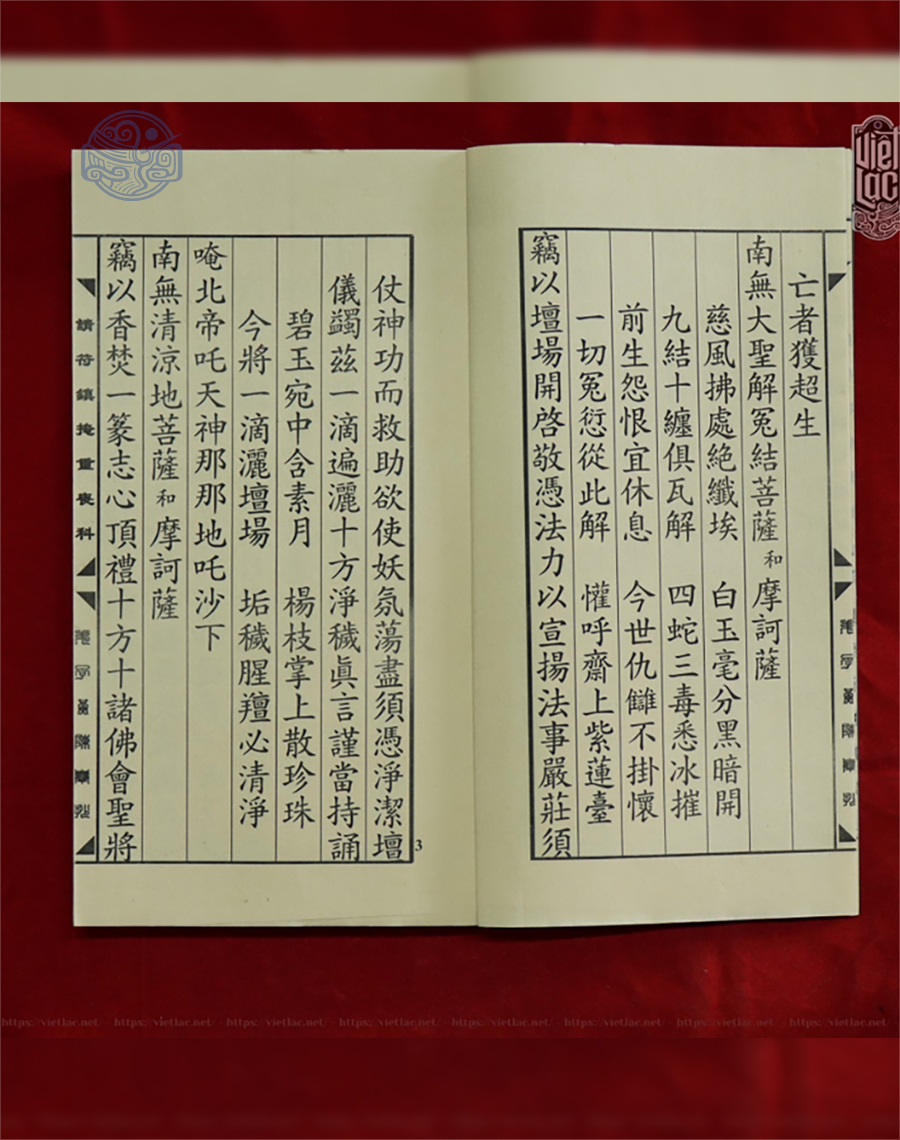 亡者獲超生
南無大聖解冤結菩薩和摩訶薩
慈風拂處絶纖埃 白玉毫分黑暗開
九結十纏俱瓦解 四蛇三毒悉冰摧
前生怨恨宜休息 今世仇讎不掛懷
一切冤愆從此解 懽呼齋上紫蓮臺
竊以壇場開啓敬憑法力以宣揚法事嚴莊須
仗神功而救助欲使妖氛蕩盡須憑淨潔壇
儀蠲茲一滴遍灑十方淨穢眞言謹當持誦
碧玉宛中含素月 楊枝掌上散珍珠
今將一滴灑壇場 垢穢腥羶必清淨
唵北帝吒天神那那地吒沙下
南無清涼地菩薩和摩訶薩
竊以香焚一篆志心頂禮十方十諸佛會聖將
請符鎮掩重喪科
3
Việt Lạc
https://vietlac.net/ - https://vietlac.net/ - https://vietlac.net/ - https://vietlac.net/ - https://vietlac.net/ - https://vietlac.net/ - https://vietlac.net/ - https://vietlac.net/